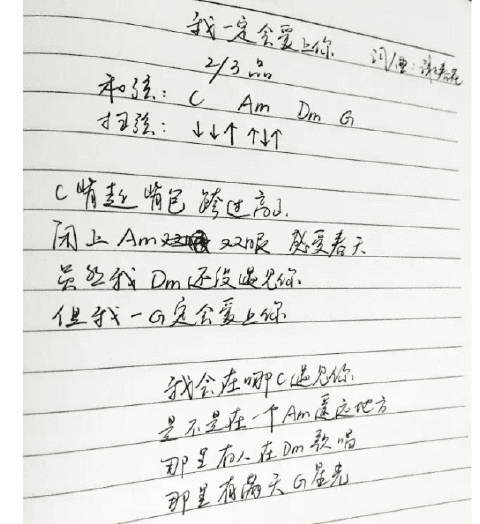 我一定会爱上你
词/曲:谢春花
2/3品
和弦: C Am Dm G
扫弦: ↓↓↑ ↑↓↑
C 背起背包 跨过高山
闭上 Am 双眼 感受春天
虽然我 Dm 还没遇见你
但我一 G 定会爱上你
我会在哪 C 遇见你
是不是在一个 Am 遥远地方
那里有人在 Dm 歌唱
那里有满天 G 星光